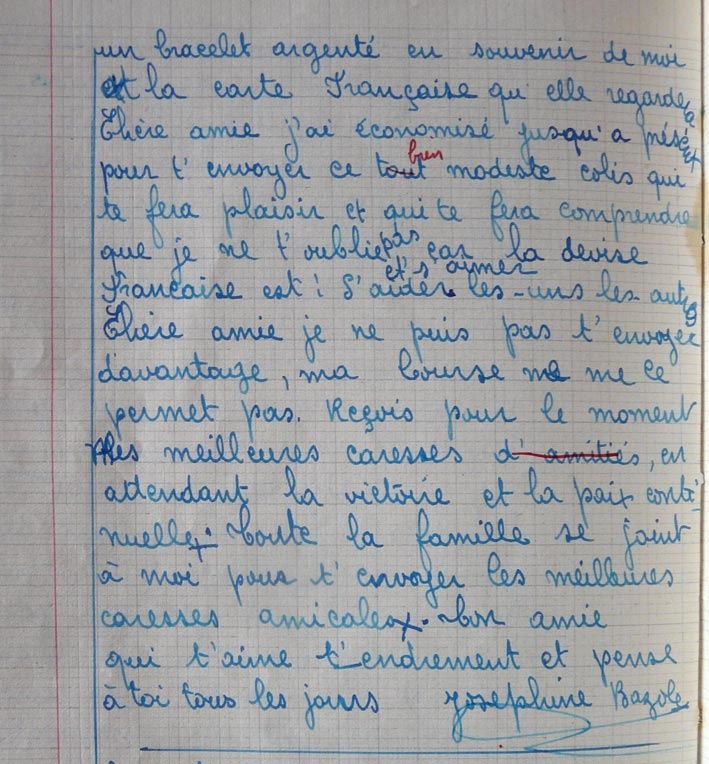 un bracelet argenté en souvenir de moi
et la carte Française qu'elle regardera
Chère amie j'ai économisé jusqu'à
pour t'envoyer ce tout bien modeste colis qui
te fera plaisir et qui te fera comprendre
que je ne t'oublie pas car la devise
Française est : S'aider et s'aimer les-uns les-autres
Chère amie je ne puis pas t'envoyer
d'avantage, ma bourse ne me le
permet pas. Reçois pour le moment
Mes meilleures caresses d'amitiés, en
attendant la victoire et la paix conti-
nuelle. Toute la famille se joint
à moi pour t'envoyer les meilleures
caresses amicales. Ton amie
qui t'aime t'endrement et pense
à toi tous les jours Joséphine Bazole